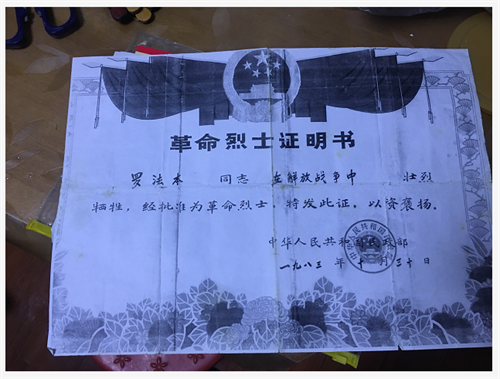 革命烈士证明书
罗法本 同志 在解放战争中 , 壮烈
牺牲,经批准为革命烈士,特发此证,以资褒扬。
中华人民共和国民政部
一九八三年十月三十日